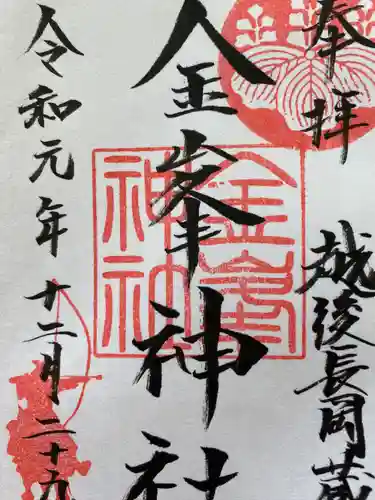 奉拝
越後長岡蔵
金峯神社
令和元年十二月二十九
金峯神社